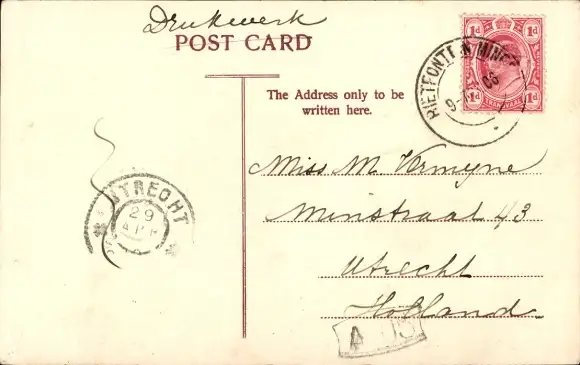 Drukwerk
POST CARD
1d 1d
1d TRANSVAAL 1d
RIETFONTEIN MINES
The Address only to be
written here.
Miss M. Vermeyne
Minstraat 43
Utrecht
Holland
UTRECHT
29